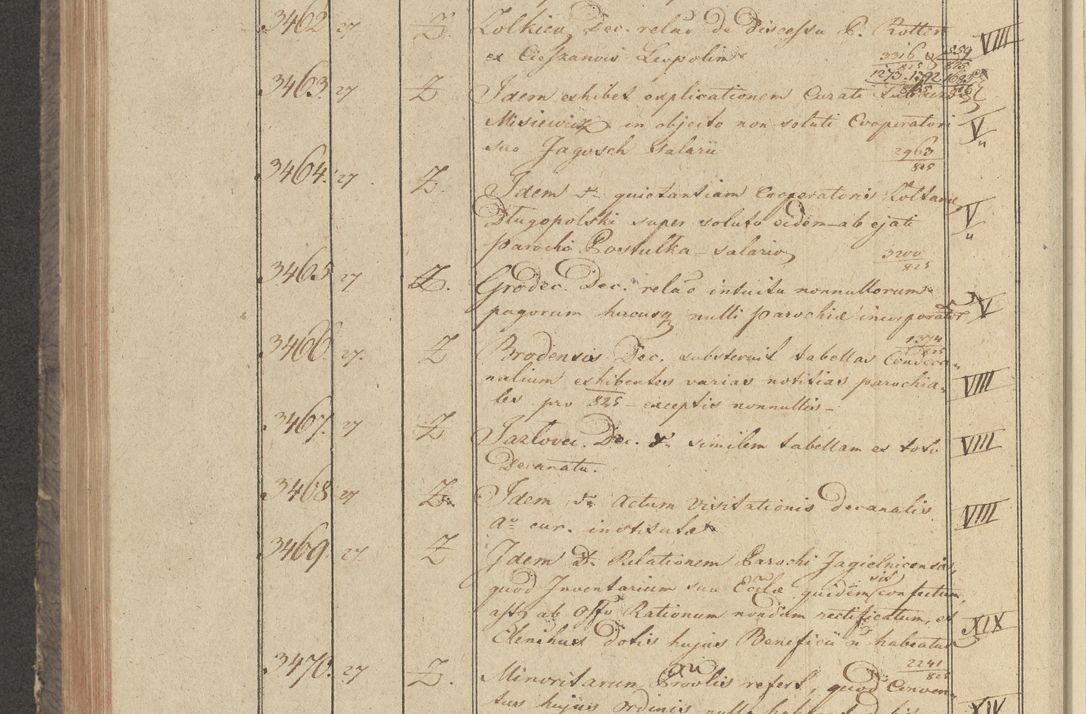 3462 27 Z. Zolkiew. Dec. relāo de discessu P. Rotter VIII
ex Cieszanow Leopolim 3316/815 1259/815
3463. 27 Z Idem exhibet explicationem Curati 1273. 1792. 1685
Misiewicz in objecto non soluti Cooperatori V
suo Jagosch Salarii 2963/825
3464. 27 Z. Idem quietantiam Cooperatoris
Długopolski super soluto eidem ab ejati V
parocho Postulka salario, 3200/825
3465 27 Z. Grodec. Dec. relāo intuitu nonnullorum
pagorum hucusq nulli parochiæ incorporator V
3466 27. Z Brodensis Dec. substernit tabellas Conseca- 1374/825
nalium exhibentes varias notitias parochia- VIII
les pro 825 - exceptis nonnullis -
3467. 27 Z Jazlovec. Dec. similem tabellam ex toto VIII
Decanatu.
3468 27 Z. Idem Actum Visitationis decanalis VIII
Aº cur. institutæ
3469 27 Z Idem Relationem Parochi Jagielnicensis,
quod Inventarium suæ Ecclæ quidem sit confectum,
ast ab Offo Rationum nondum rectificatum, et XIX
Elenchus Dotis hujus Beneficii ñ habeatur
3470. 27 Z. Minoritarum Provlis refert, quod Conven- 2241/825
tus hujus Ordinis XIV